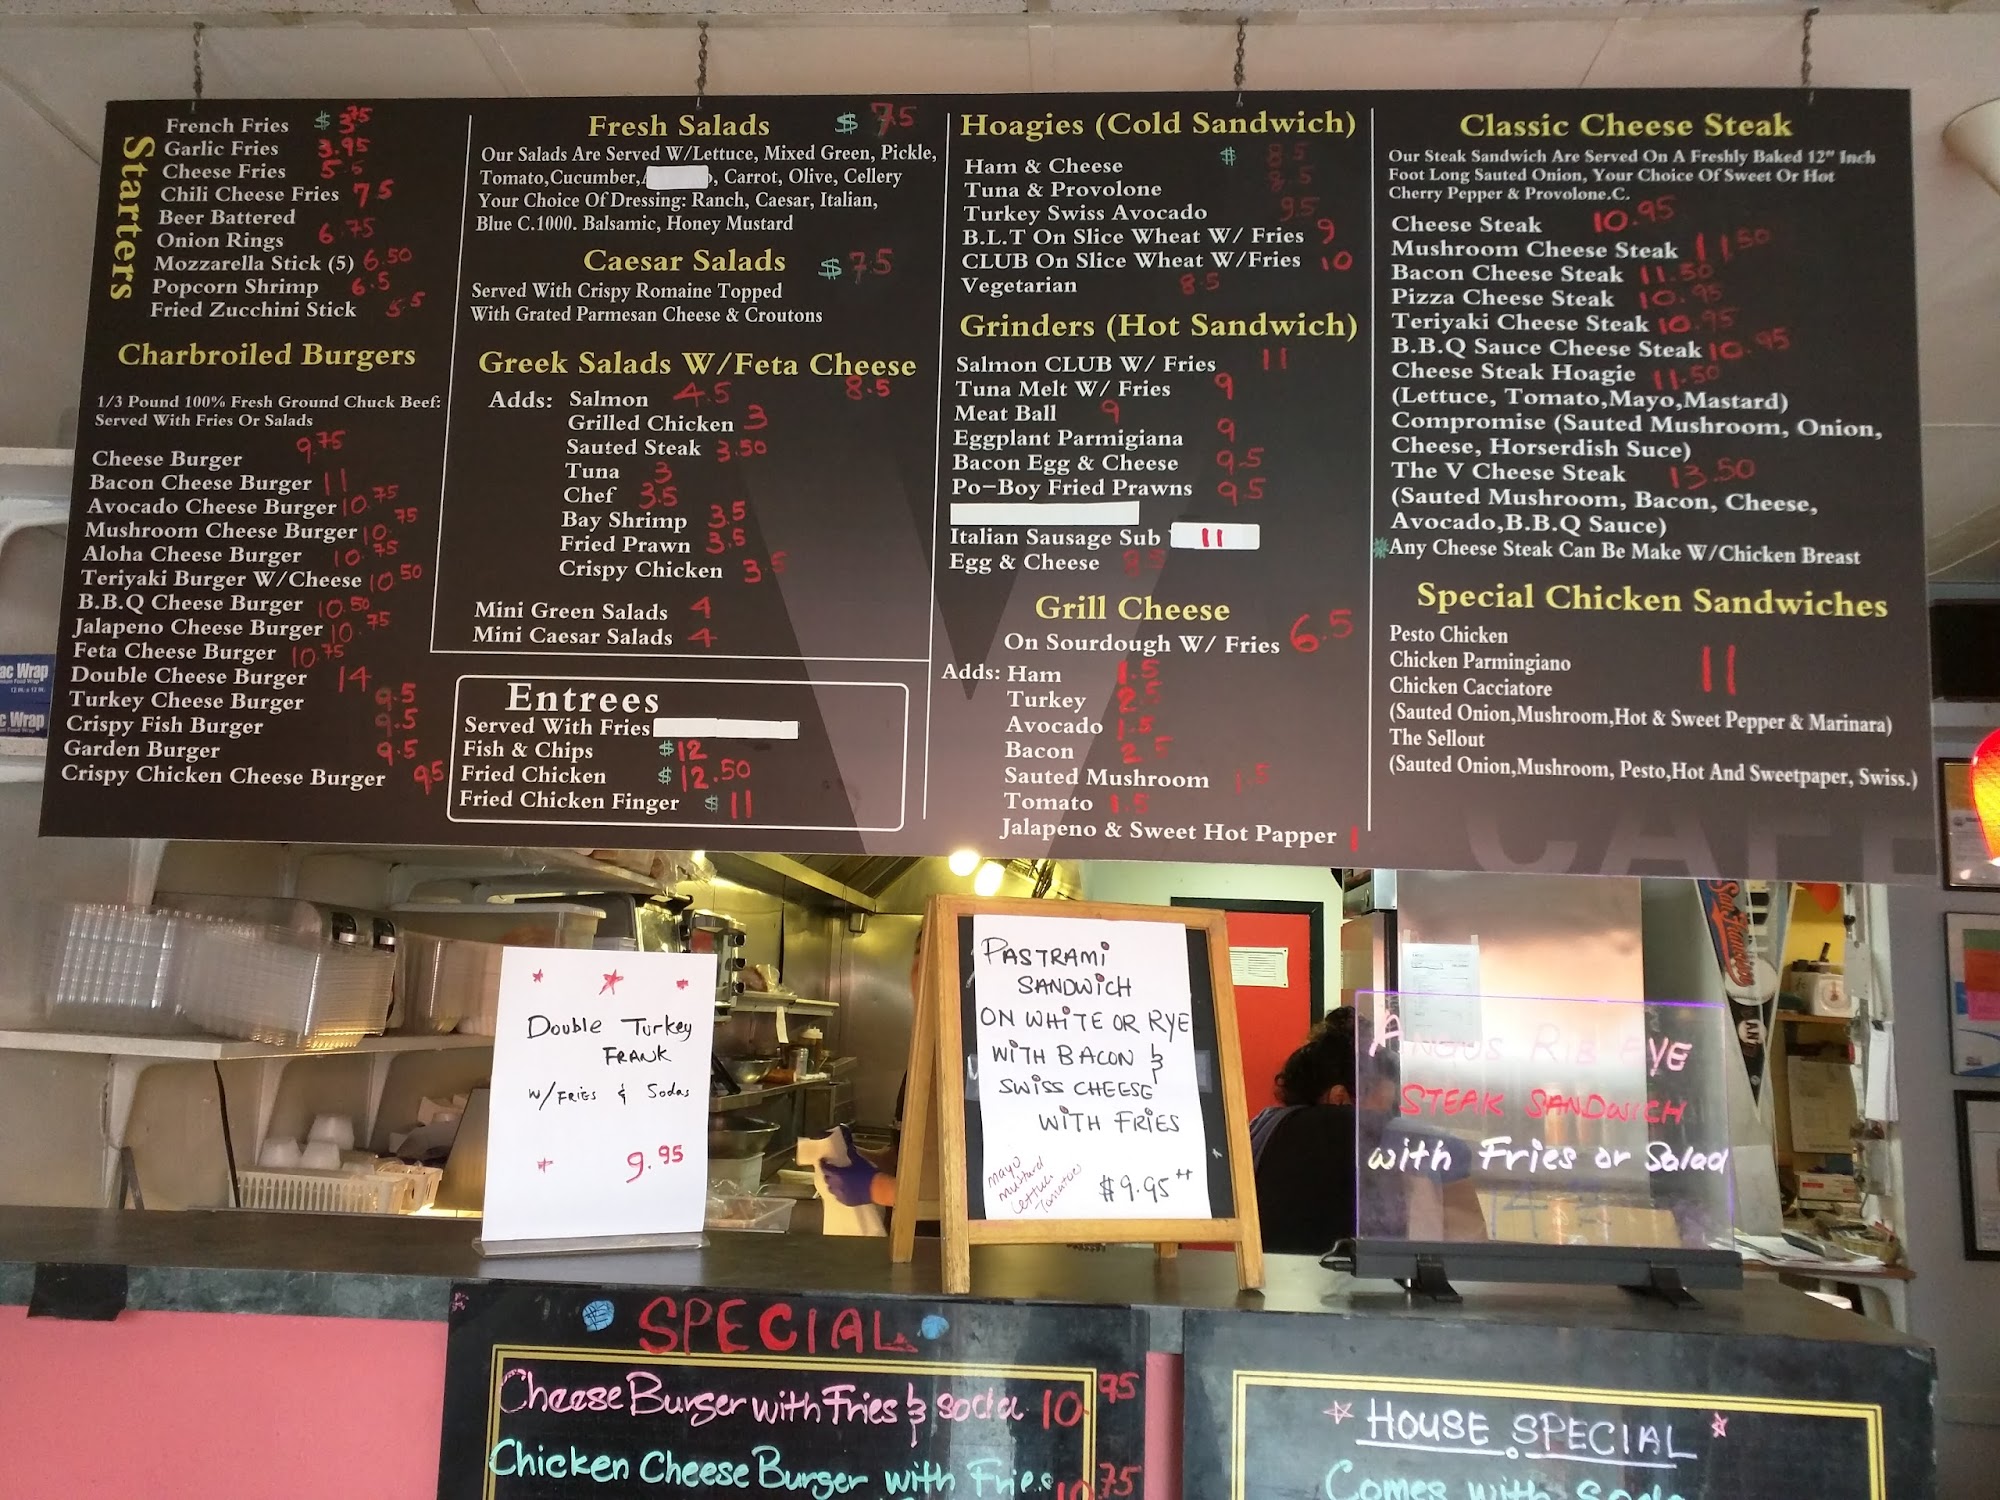 Starters
French Fries $ 3.75
Garlic Fries 3.95
Cheese Fries 5.5
Chili Cheese Fries 7.5
Beer Battered
Onion Rings 6.75
Mozzarella Stick (5) 6.50
Popcorn Shrimp 6.5
Fried Zucchini Stick 5.5
Charbroiled Burgers
1/3 Pound 100% Fresh Ground Chuck Beef:
Served With Fries Or Salads
Cheese Burger 9.75
Bacon Cheese Burger 11
Avocado Cheese Burger 10.75
Mushroom Cheese Burger 10.75
Aloha Cheese Burger 10.75
Teriyaki Burger W/Cheese 10.50
B.B.Q Cheese Burger 10.50
Jalapeno Cheese Burger 10.75
Feta Cheese Burger 10.75
Double Cheese Burger 14
Turkey Cheese Burger 9.5
Crispy Fish Burger 9.5
Garden Burger 9.5
Crispy Chicken Cheese Burger 9.5
Fresh Salads $ 7.5
Our Salads Are Served W/Lettuce, Mixed Green, Pickle,
Tomato,Cucumber, , Carrot, Olive, Cellery
Your Choice Of Dressing: Ranch, Caesar, Italian,
Blue C.1000. Balsamic, Honey Mustard
Caesar Salads $ 7.5
Served With Crispy Romaine Topped
With Grated Parmesan Cheese & Croutons
Greek Salads W/Feta Cheese
8.5
Adds: Salmon 4.5
Grilled Chicken 3
Sauted Steak 3.50
Tuna 3
Chef 3.5
Bay Shrimp 3.5
Fried Prawn 3.5
Crispy Chicken 3.5
Mini Green Salads 4
Mini Caesar Salads 4
Entrees
Served With Fries
Fish & Chips $ 12
Fried Chicken $ 12.50
Fried Chicken Finger $ 11
Hoagies (Cold Sandwich)
Ham & Cheese $ 8.5
Tuna & Provolone 8.5
Turkey Swiss Avocado 9.5
B.L.T On Slice Wheat W/ Fries 9
CLUB On Slice Wheat W/Fries 10
Vegetarian 8.5
Grinders (Hot Sandwich)
Salmon CLUB W/ Fries 11
Tuna Melt W/ Fries 9
Meat Ball 9
Eggplant Parmigiana 9
Bacon Egg & Cheese 9.5
Po-Boy Fried Prawns 9.5
Italian Sausage Sub 11
Egg & Cheese 8.5
Grill Cheese
On Sourdough W/ Fries 6.5
Adds: Ham 1.5
Turkey 2.5
Avocado 1.5
Bacon 2.5
Sauted Mushroom 1.5
Tomato 1.5
Jalapeno & Sweet Hot Papper 1
Classic Cheese Steak
Our Steak Sandwich Are Served On A Freshly Baked 12" Inch
Foot Long Sauted Onion, Your Choice Of Sweet Or Hot
Cherry Pepper & Provolone.C.
Cheese Steak 10.95
Mushroom Cheese Steak 11.50
Bacon Cheese Steak 11.50
Pizza Cheese Steak 10.95
Teriyaki Cheese Steak 10.95
B.B.Q Sauce Cheese Steak 10.95
Cheese Steak Hoagie 11.50
(Lettuce, Tomato,Mayo,Mastard)
Compromise (Sauted Mushroom, Onion,
Cheese, Horserdish Suce)
The V Cheese Steak 13.50
(Sauted Mushroom, Bacon, Cheese,
Avocado,B.B.Q Sauce)
*Any Cheese Steak Can Be Make W/Chicken Breast
Special Chicken Sandwiches
Pesto Chicken
Chicken Parmingiano 11
Chicken Cacciatore
(Sauted Onion,Mushroom,Hot & Sweet Pepper & Marinara)
The Sellout
(Sauted Onion,Mushroom, Pesto,Hot And Sweetpaper, Swiss.)
CAFE
ac Wrap
c Wrap
Double Turkey
FRANK
w/FRIES & Sodas
9.95
PASTRAMI
SANDWICH
ON WHITE OR RYE
WITH BACON &
SWISS CHEESE
WITH FRIES
mayo
mustard
lettuce
Tomatoes
$9.95++
ANGUS RIB EYE
STEAK SANDWICH
with Fries or Salad
San Francisco
SPECIAL
Cheese Burger with Fries & soda 10.95
Chicken Cheese Burger with Fries 10.75
HOUSE SPECIAL
Comes with soda